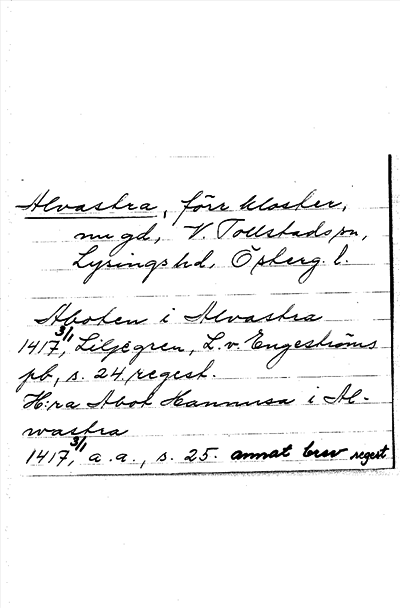 Alvastra, förr kloster,
nu gd, V. Tollstads sn,
Lysings hd, Österg. l.
Aboten i Alvastra
1417 3/1, Liljegren, L. v. Engeströms
pb, s. 24. regest.
H:ra Abot Hannusa i Al-
wastra
1417 3/1, a. a., s. 25. annat brev regest